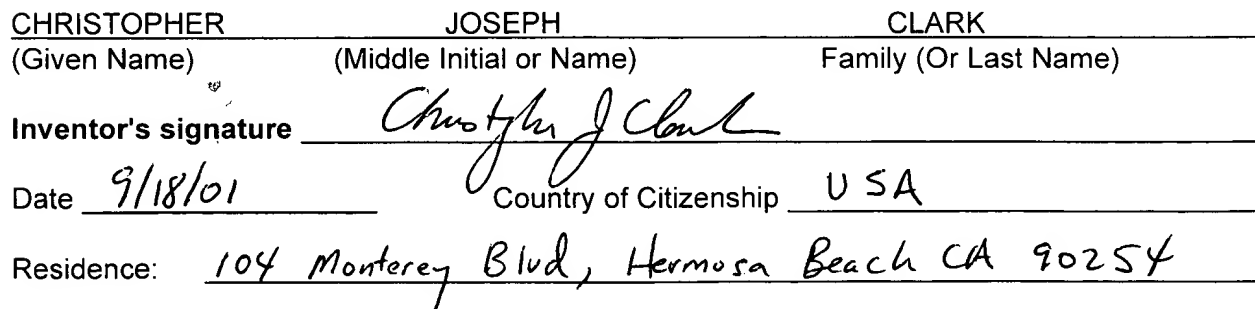 CHRISTOPHER JOSEPH CLARK
(Given Name) (Middle Initial or Name) Family (Or Last Name)
Inventor's signature Christopher J Clark
Date 9/18/01 Country of Citizenship USA
Residence: 104 Monterey Blvd, Hermosa Beach CA 90254